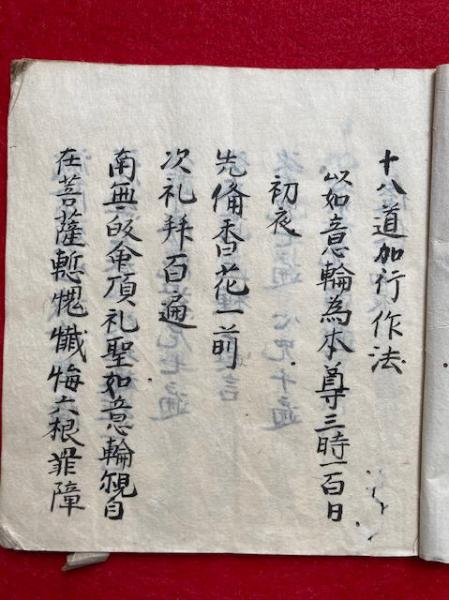 十八道加行作法
以如意輪為本尊三時一百日
初夜
先備香花一前
次礼拝百遍
南無皈命頂礼聖如意輪観自
在菩薩慙愧懺悔六根罪障